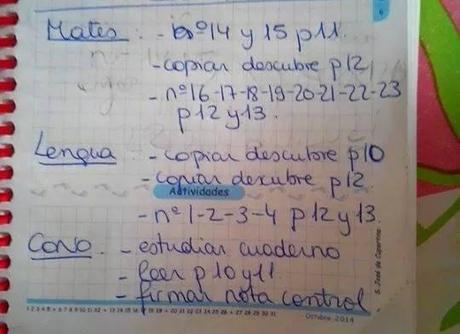 6
Mates: - nº14 y 15 p11.
- copiar descubre p12
- nº16-17-18-19-20-21-22-23
p12 y 13.
Lengua - copiar descubre p10
- copiar descubre p12
Actividades
- nº 1-2-3-4 p12 y 13
Cono. - estudiar cuaderno
- leer p10 y 11
- firmar nota control.
S. José de Cupertino
1 2 3 4 5 • 6 7 8 9 10 11 12 • 13 14 15 16 17 18 19 • 20 21 22 23 24 25 26 • 27 28 29 30 31
Octubre 2014